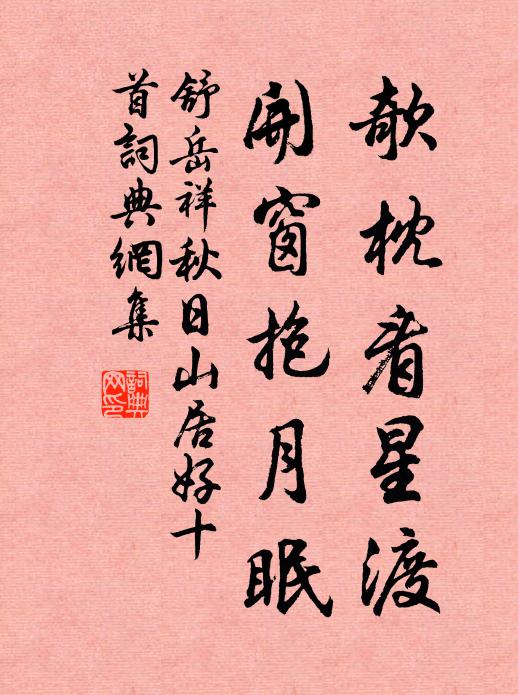 欹枕看星渡
開窗抱月眠
舒岳祥秋日山居好十
首詞典網集
詞典網印